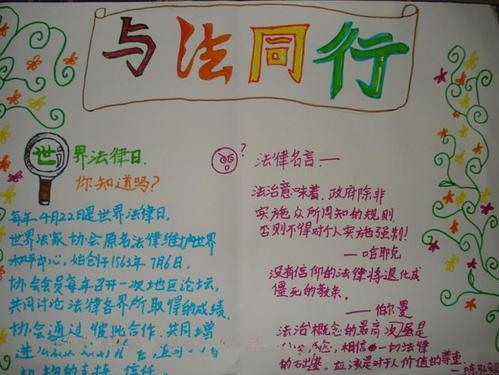 与法同行
世界法律日.
你知道吗?
每年4月22日是世界法律日,
世界法家协会原名法律维护世界
和平中心,始创于1963年7月6日,
协会会员每年召开一次地区论坛,
共同讨论法律各界所取得的成绩.
协会通过彼此合作.共同增
支持 信任
?
法律名言:一
法治意味着,政府除非
实施众所周知的规则
否则不得对个人实施强制!
——哈耶克
没有信仰的法律将退化成
僵死的教条.
——伯尔曼
法治概念的最高次层是
信念,相信一切法律
的 应该是对于人价值的尊重.
——陈弘毅